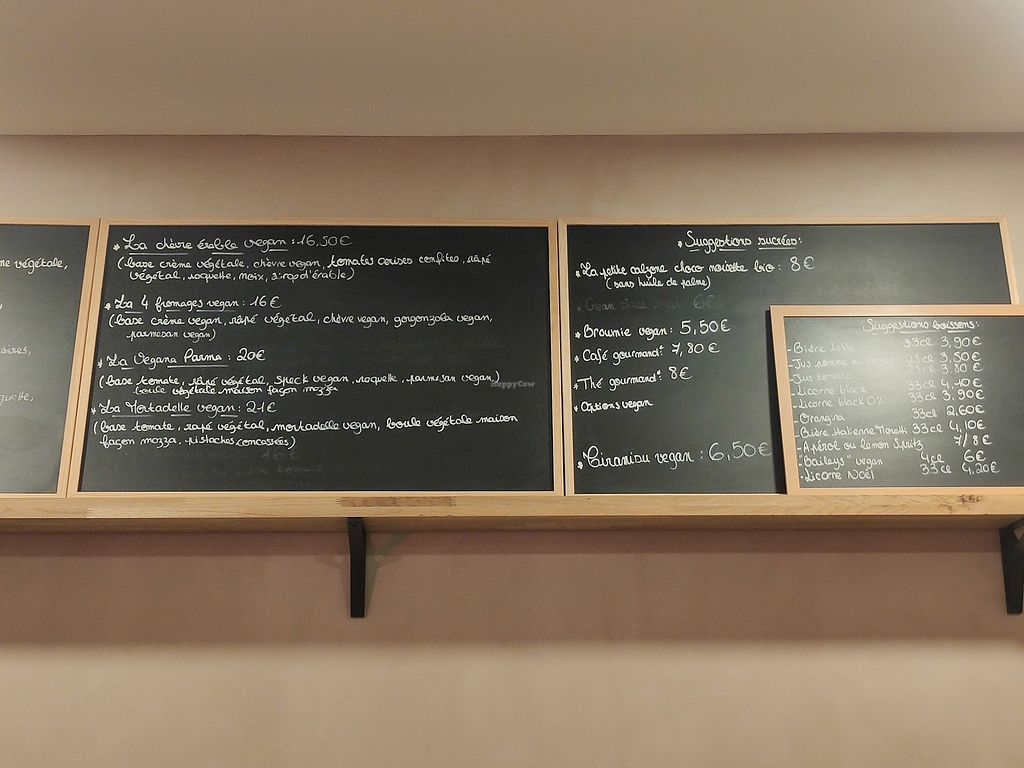 ne végétale,
* La chèvre érable vegan : 16,50€
(base crème végétale, chèvre vegan, tomates cerises confites, râpé
végétal, roquette, noix, sirop d'érable)
* La 4 fromages vegan : 16€
(base crème vegan, râpé végétal, chèvre vegan, gorgonzola vegan,
parmesan vegan)
* La Vegana Parma : 20€
(base tomate, râpé végétal, speck vegan, roquette, parmesan vegan)
boule végétale maison façon mozza
* La Mortadelle vegan : 21€
(base tomate, rapé végétal, mortadelle vegan, boule végétale maison
façon mozza, pistaches concassées)
HappyCow
* Suggestions sucrées :
* La petite calzone choco noisette bio : 8€
(sans huile de palme)
6€
* Brownie vegan : 5,50€
* Café gourmand* : 7,80€
* Thé gourmand* : 8€
* Options vegan
* Tiramisu vegan : 6,50€
Suggestions boissons :
- Bière 33cl 3,90€
- Jus pomme 25cl 3,50€
- Jus tomate 25cl 3,80€
- Licorne black 33cl 4,10€
- Licorne black 0% 33cl 3,90€
- Orangina 33cl 2,60€
- Bière italienne Moretti 33cc 4,10€
- Apérol ou lemon Spritz 7/8€
- "Baileys" vegan 4cl 6€
- Licorne Noël 33cl 4,20€